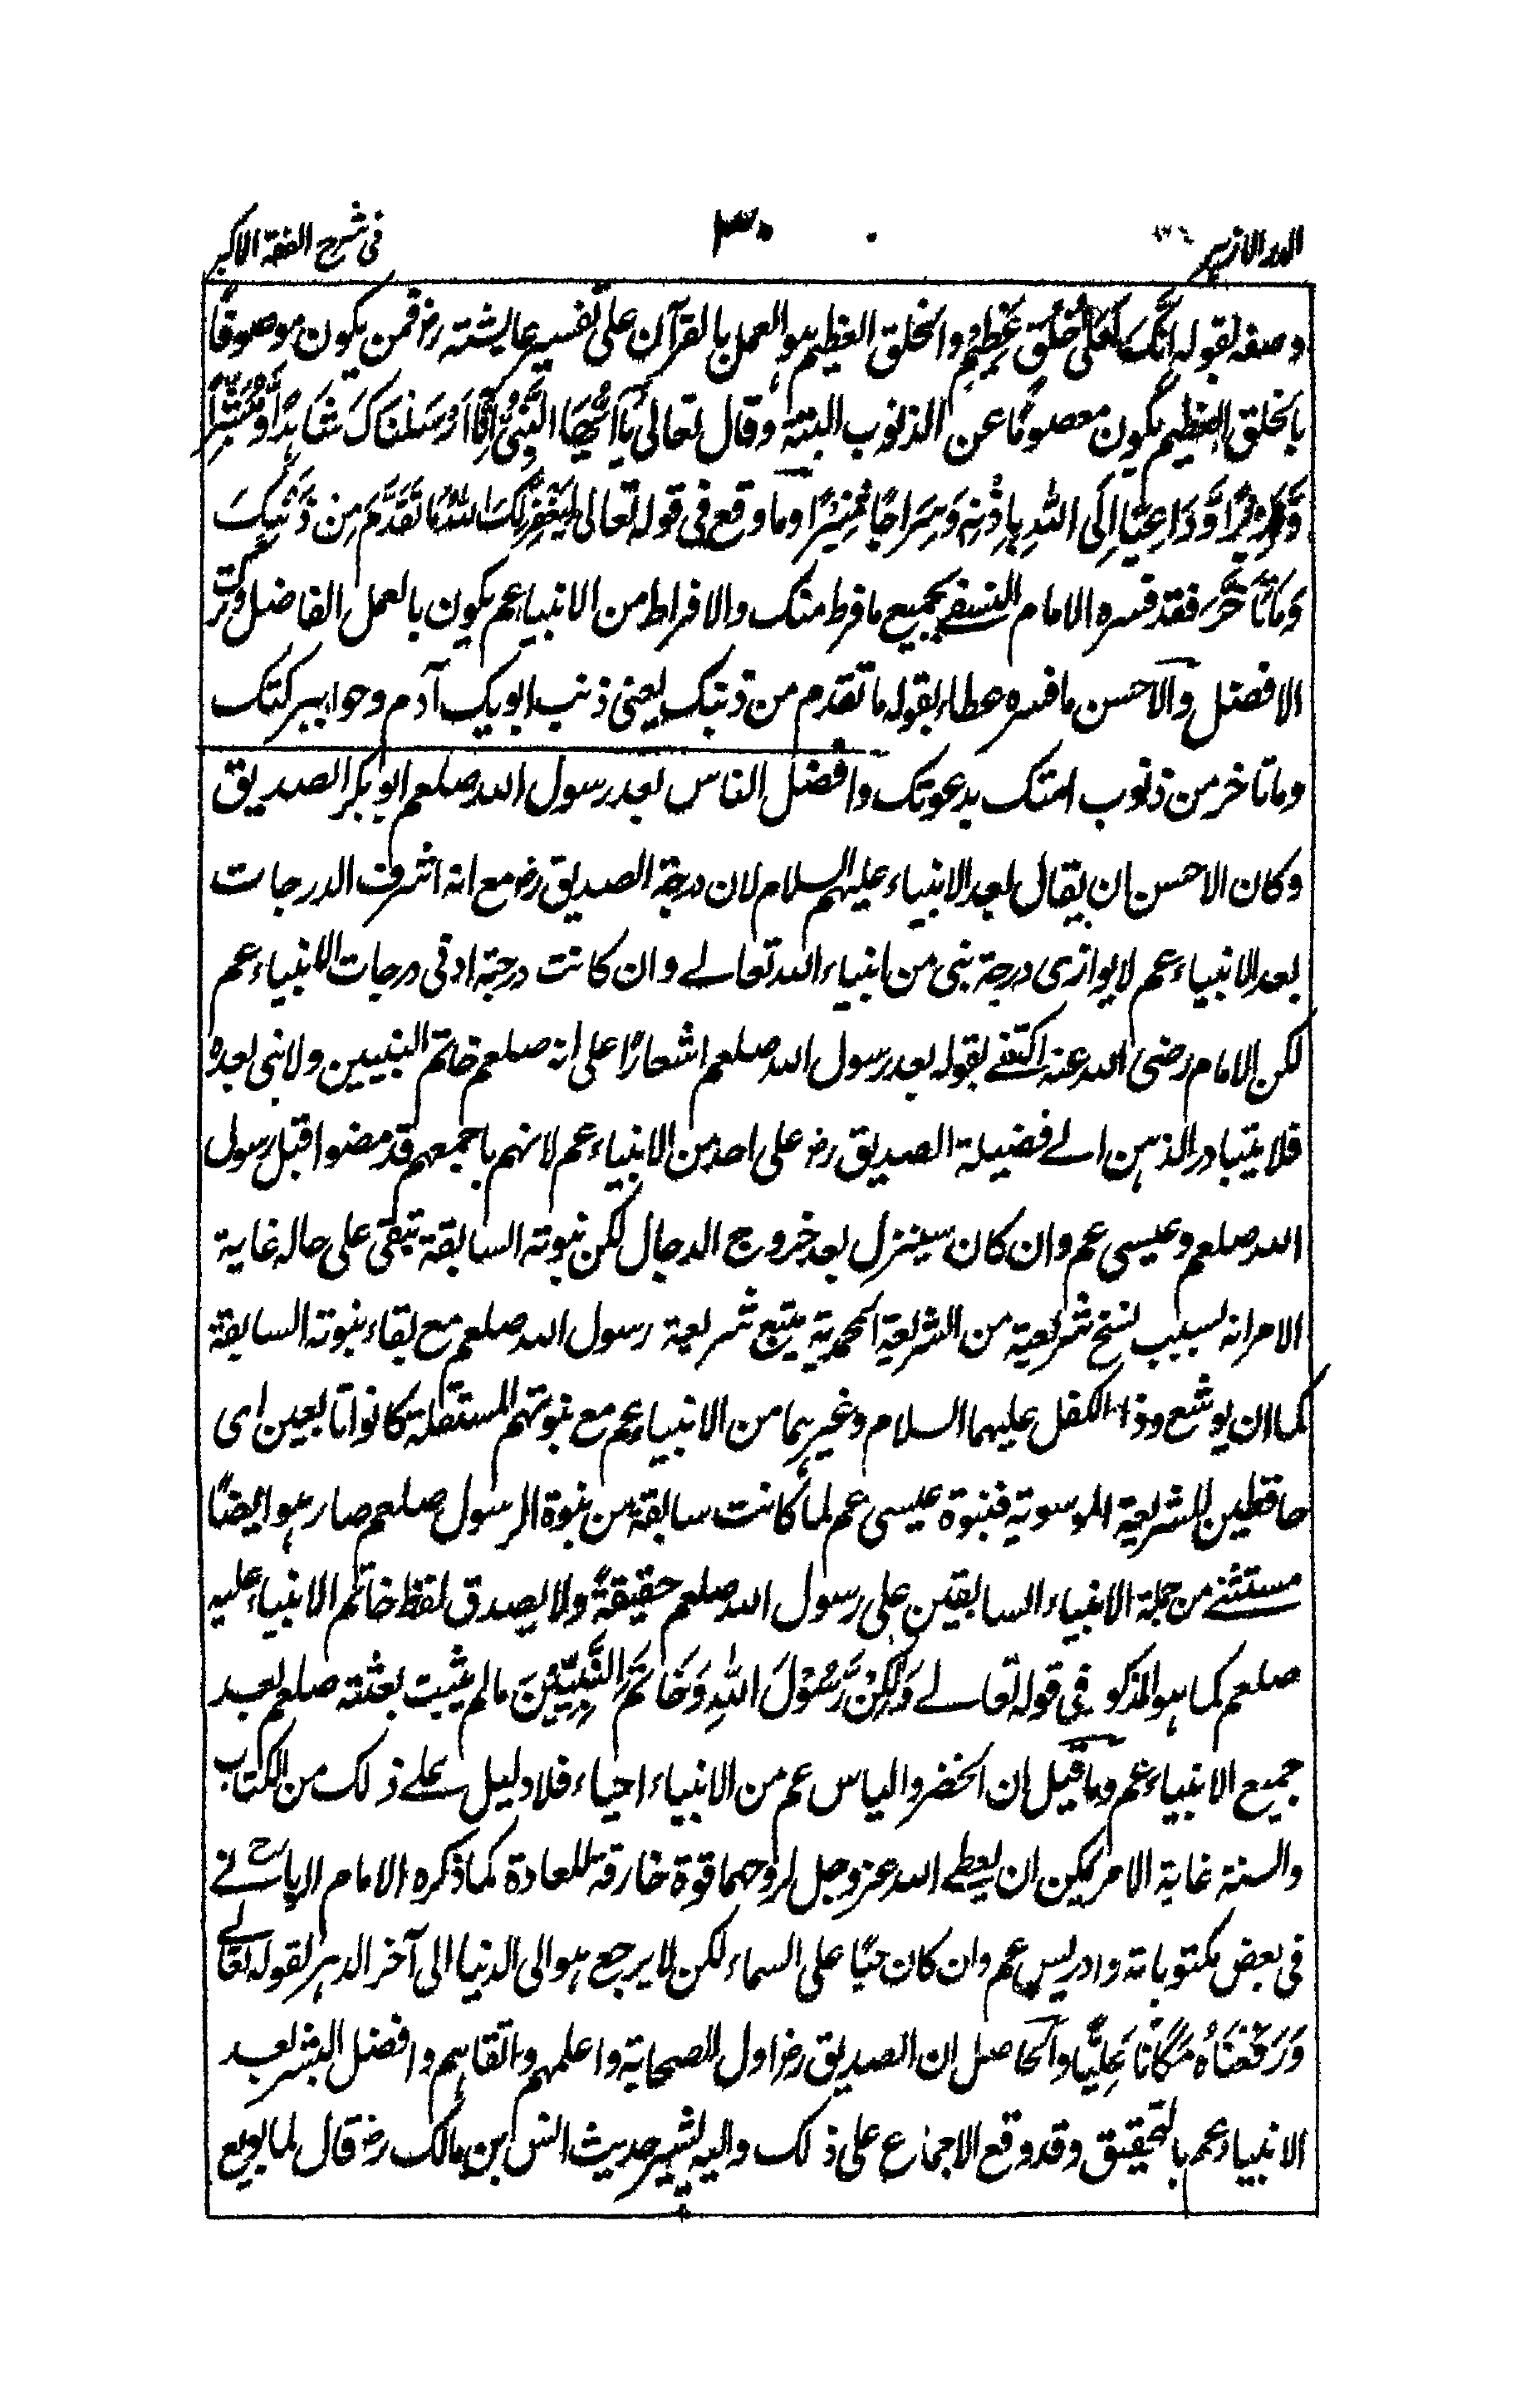 الدر الازهر ٣٠ فى شرح الفقه الاكبر
وصفه لقوله اِنَّكَ لَعَلٰى خُلُقٍ عَظِيْمٍ والخلق العظيم هو العمل بالقرآن على تفسير عايشة رض فمن يكون موصوفًا
بالخلق العظيم يكون معصومًا عن الذنوب البتة وقال تعالى يٰاَ اَيُّهَا النَّبِىُّ اِنَّا اَرْسَلْنَاكَ شَاهِدًا وَّمُبَشِّرًا
وَّنَذِيْرًا وَّدَاعِيًا اِلَى اللّٰهِ بِاِذْنِهٖ وَسِرَاجًا مُّنِيْرًا وما وقع فى قوله تعالى لِيَغْفِرَ لَكَ اللّٰهُ مَا تَقَدَّمَ مِنْ ذَنْبِكَ
وَمَا تَاَخَّرَ فقد فسره الامام النسفى بجميع ما فرط منك والافراط من الانبياء عم يكون بالعمل الفاضل وترك
الافضل والاحسن ما فسره عطاء بقوله ما تقدم من ذنبك يعنى ذنب ابويك آدم وحوا ببركتك
وما تاخر من ذنوب امتك بدعوتك وافضل الناس بعد رسول الله صلعم ابو بكر الصديق
وكان الاحسن ان يقال بعد الانبياء عليهم السلام لان درجة الصديق رض مع انه اشرف الدرجات
بعد الانبياء عم لا يوازى درجة نبى من انبياء الله تعالے وان كانت درجة ادنى درجات الانبياء عم
لكن الامام رضى الله عنه اكتفے بقوله بعد رسول الله صلعم اشعارًا على انه صلعم خاتم النبيين ولا نبى بعده
فلا يتبادر الذهن الے فضيلة الصديق رض على احد من الانبياء عم لانهم باجمعهم قد مضوا قبل رسول
الله صلعم وعيسى عم وان كان سينزل بعد خروج الدجال لكن نبوته السابقة تبقى على حاله غاية
الامر انه بسبب نسخ شريعية من الشريعة المحمدية يتبع شريعة رسول الله صلعم مع بقاء نبوته السابقة
كما ان يوشع وذا الكفل عليهما السلام وغيرهما من الانبياء عم مع نبوتهم المستقلة كانوا تابعين اى
حافظين للشريعة الموسوية فنبوة عيسى عم لما كانت سابقة من نبوة الرسول صلعم صار هو ايضًا
مستثنے من جملة الانبياء السابقين على رسول الله صلعم حقيقةً ولا يصدق لفظ خاتم الانبياء عليه
صلعم كما هو المذكور فى قوله تعالے وَلٰكِنْ رَّسُوْلَ اللّٰهِ وَخَاتَمَ النَّبِيّٖنَ مالم يثبت بعثته صلعم بعد
جميع الانبياء عم وما قيل ان الخضر والياس عم من الانبياء احياء فلا دليل علے ذلك من الكتاب
والسنة غاية الامر يمكن ان يعطے الله عز وجل لروحهما قوة خارقة للعادة كما ذكره الامام الربانے رح
فى بعض مكتوباته وادريس عم وان كان حيًا على السماء لكن لا يرجع هو الى الدنيا الى آخر الدهر لقوله تعالے
وَرَفَعْنَاهُ مَكَانًا عَلِيًّا والحاصل ان الصديق رض اول الصحابة واعلمهم واتقاهم وافضل البشر بعد
الانبياء عم بالتحقيق وقد وقع الاجماع على ذلك واليه يشير حديث انس ابن مالك رض قال لما بويع